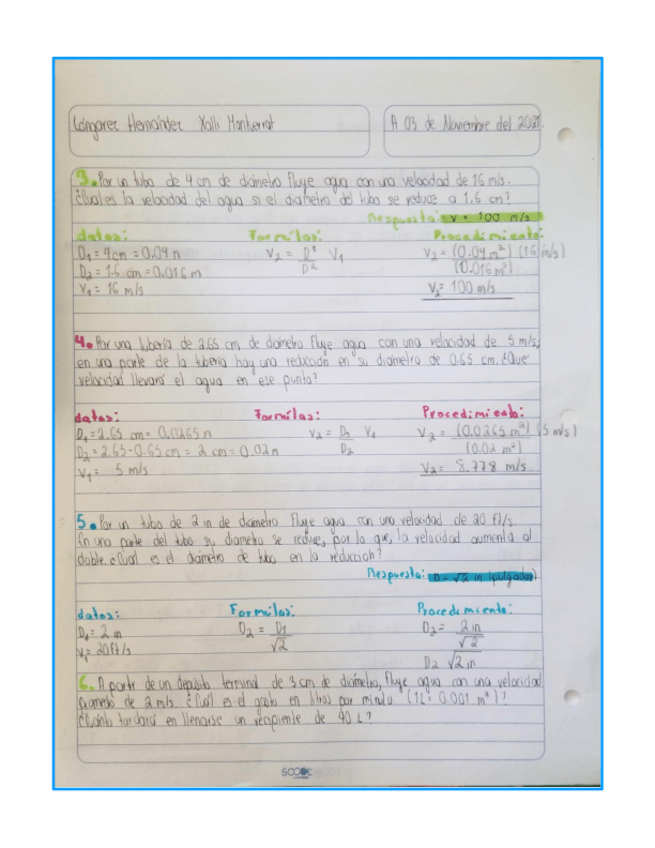 Congarer Hernánder Xalli Montserrat
A 03 de Noviembre del 2021.
3. Por un tubo de 4 cm de diámetro fluye agua con una velocidad de 16 m/s.
¿Cual es la velocidad del agua si el diametro del tubo se reduce a 1.6 cm?
Respuesta: v = 100 m/s
datos: Formúlas: Procedimiento:
D₁ = 4cm = 0.04 m V₂ = D² V₁ V₂ = (0.04 m²) (16 m/s)
D₂ = 1.6 cm = 0.016 m D² (0.016 m²)
V₁ = 16 m/s V₂ = 100 m/s
4. Por una tubería de 2.65 cm de diámetro fluye agua con una velocidad de 5 m/s,
en una parte de la tubería hay una reducción en su diametro de 0.65 cm. ¿Que
velocidad llevará el agua en ese punto?
datos: Formúlas: Procedimiento:
D₁ = 2.65 cm = 0.0265 m V₂ = D₁ V₁ V₂ = (0.0265 m²) (5 m/s)
D₂ = 2.65 - 0.65 cm = 2 cm = 0.02 m D₂ (0.02 m²)
V₁ = 5 m/s V₂ = 8.778 m/s
5. Por un tubo de 2 in de diámetro fluye agua con una velocidad de 20 ft/s.
En una parte del tubo su diametro se reduce, por lo que, la velocidad aumenta al
doble. ¿Cuál es el diámetro de tubo en la reducción?
Respuesta: D = √2 in (pulgadas)
datos: Formúlas: Procedimiento:
D₁ = 2 in D₂ = D₁ D₂ = 2 in
V₁ = 20 ft/s √2 √2
D₂ √2 in
6. A partir de un deposito terminal de 3 cm de diámetro, fluye agua con una velocidad
promedio de 2 m/s. ¿Cuál es el gasto en litros por minuto (1L = 0.001 m³)?
¿Cuánto tardará en llenarse un recipiente de 40 L?